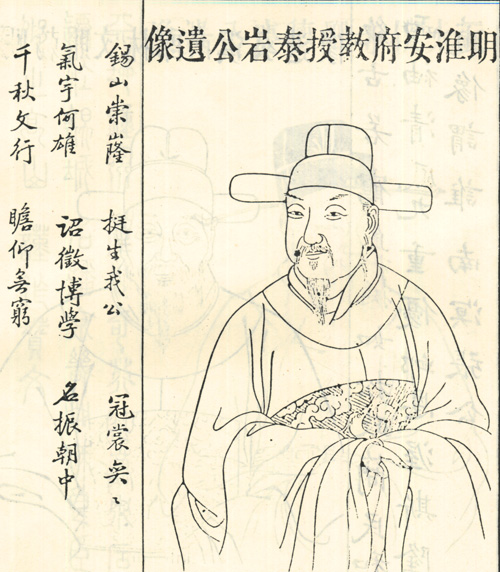 明淮安府教授泰岩公遺像
錫山崇嶐 挺生我公 冠裳奕〻
氣宇何雄 詔徵博學 名振朝中
千秋文行 瞻仰無窮